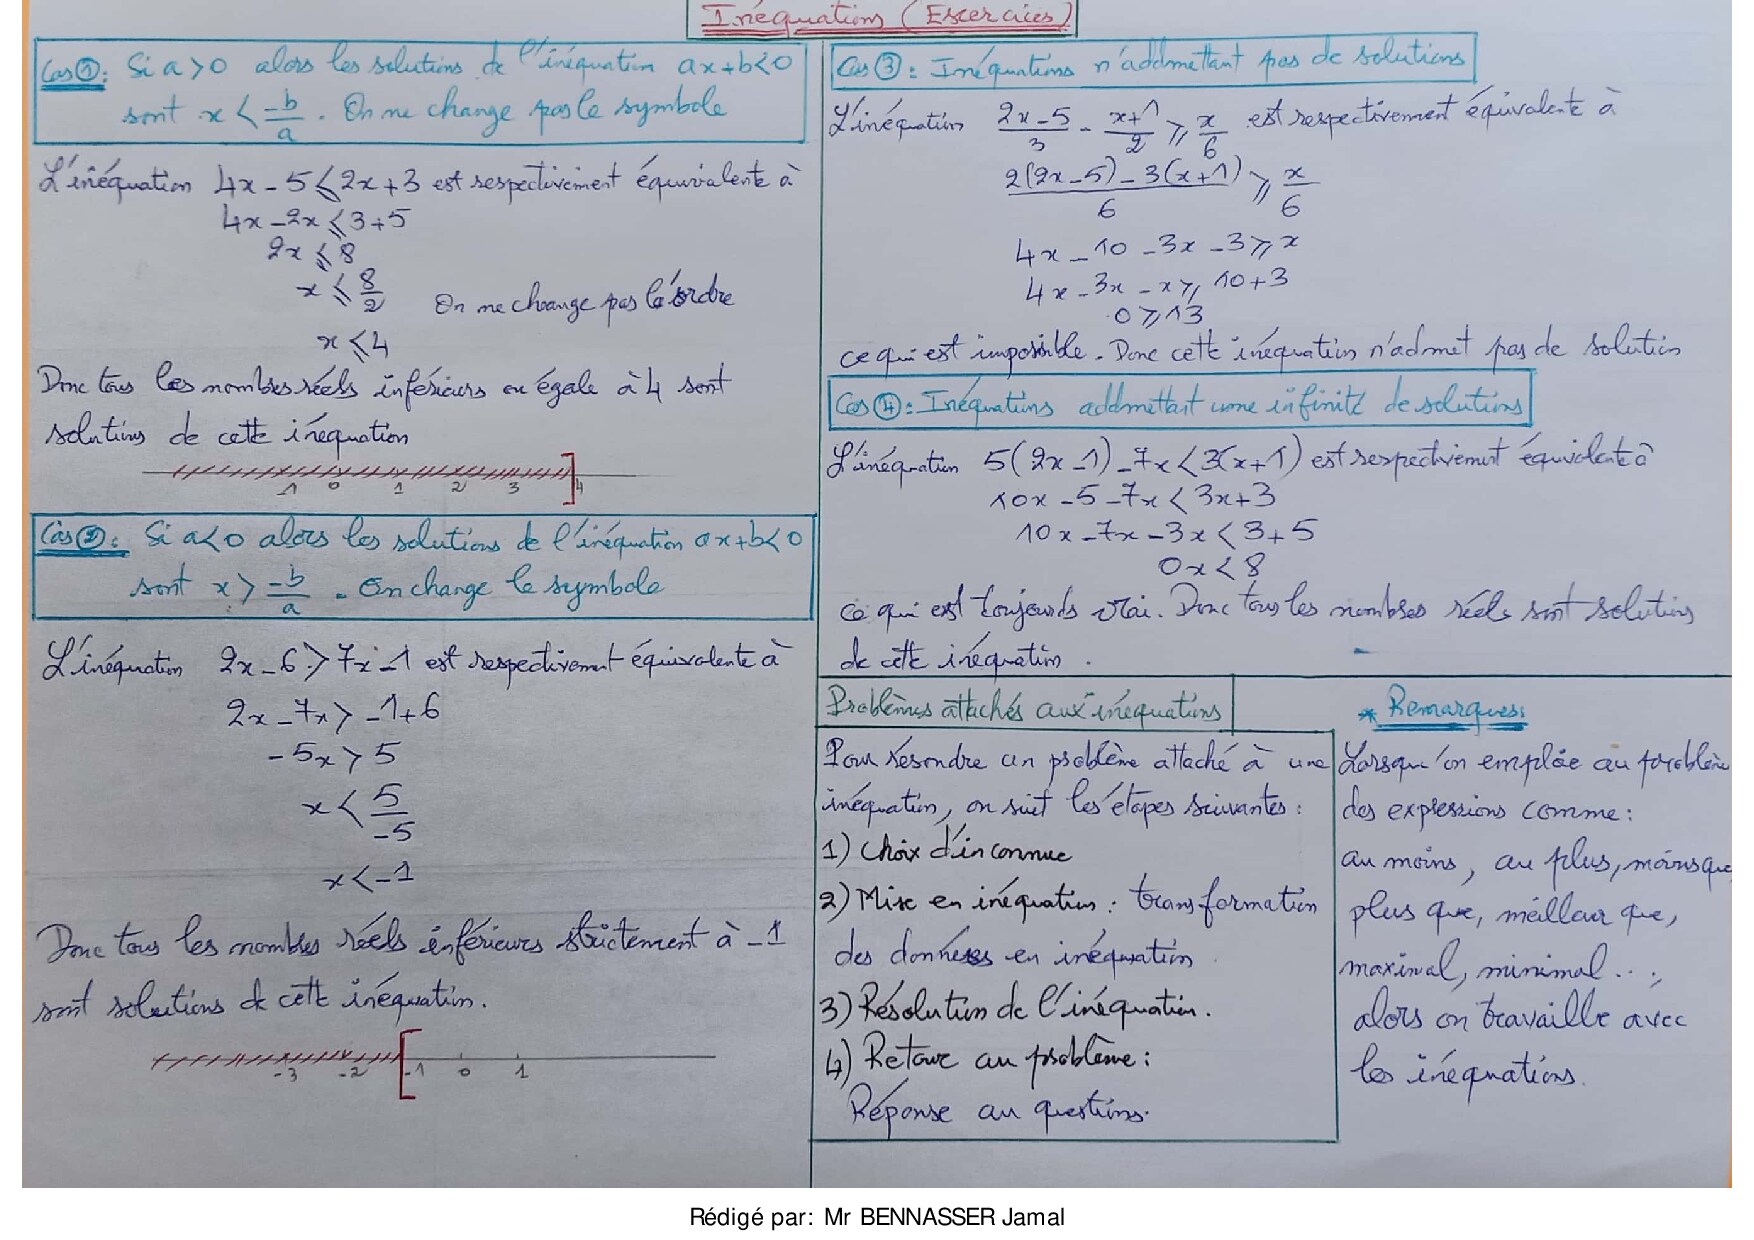 Inéquations (Exercices)
Cas ①: Si a > 0 alors les solutions de l'inéquation ax+b<0
sont x < -b/a . On ne change pas le symbole
L'inéquation 4x - 5 ⩽ 2x + 3 est respectivement équivalente à
4x - 2x ⩽ 3 + 5
2x ⩽ 8
x ⩽ 8/2 On ne change pas l'ordre
x ⩽ 4
Donc tous les nombres réels inférieurs ou égale à 4 sont
solutions de cette inéquation
-1 0 1 2 3 4
Cas ②: Si a<0 alors les solutions de l'inéquation ax+b<0
sont x > -b/a . On change le symbole
L'inéquation 2x - 6 > 7x - 1 est respectivement équivalente à
2x - 7x > -1 + 6
-5x > 5
x < 5/-5
x < -1
Donc tous les nombres réels inférieurs strictement à -1
sont solutions de cette inéquation.
-3 -2 -1 0 1
Cas ③: Inéquations n'addmettant pas de solutions
L'inéquation (2x-5)/3 - (x+1)/2 ⩾ x/6 est respectivement équivalente à
(2(2x-5) - 3(x+1))/6 ⩾ x/6
4x - 10 - 3x - 3 ⩾ x
4x - 3x - x ⩾ 10 + 3
0 ⩾ 13
ce qui est impossible. Donc cette inéquation n'admet pas de solution
Cas ④: Inéquations addmettant une infinité de solutions
L'inéquation 5(2x-1) - 7x < 3(x+1) est respectivement équivalente à
10x - 5 - 7x < 3x + 3
10x - 7x - 3x < 3 + 5
0x < 8
ce qui est toujours vrai. Donc tous les nombres réels sont solutions
de cette inéquation.
Problèmes attachés aux inéquations
Pour résoudre un problème attaché à une
inéquation, on suit les étapes suivantes :
1) Choix d'inconnue
2) Mise en inéquation : transformation
des données en inéquation
3) Résolution de l'inéquation.
4) Retour au problème :
Réponse au questions.
* Remarques:
Lorsqu'on emploie au problème
des expressions comme :
au moins, au plus, moins que
plus que, meilleur que,
maximal, minimal...,
alors on travaille avec
les inéquations.
Rédigé par: Mr BENNASSER Jamal